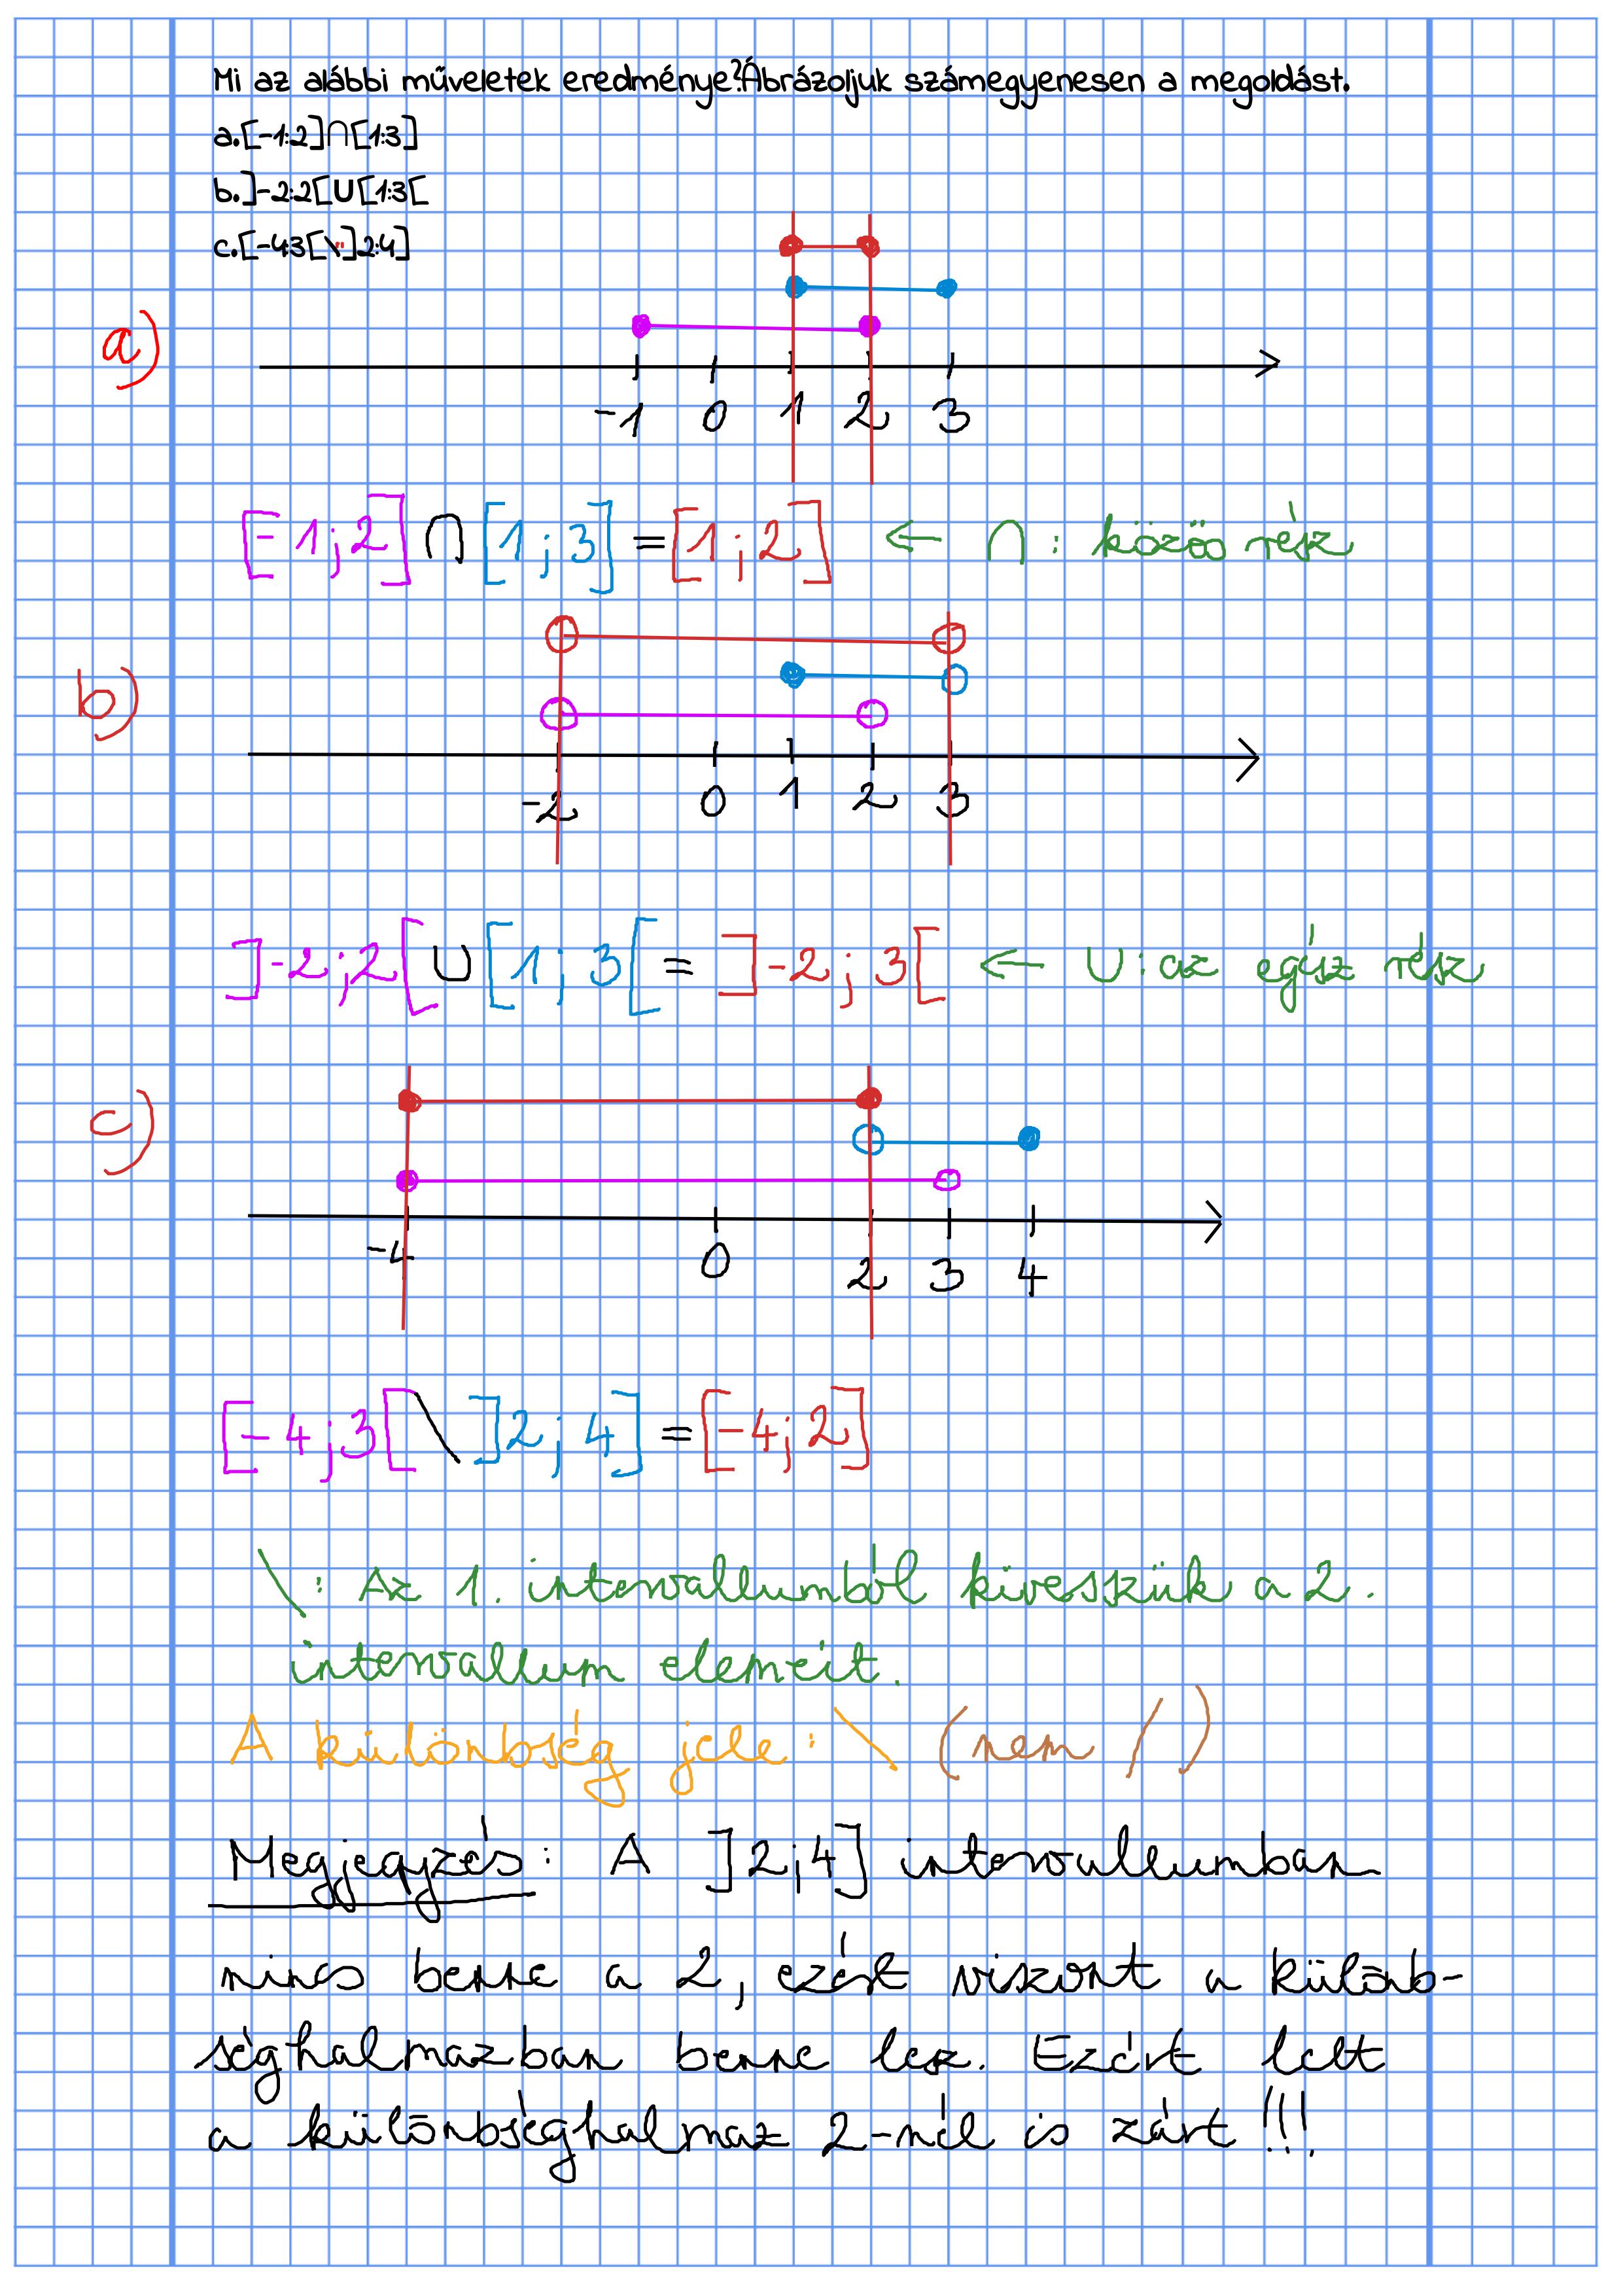 Mi az alábbi műveletek eredménye?Ábrázoljuk számegyenesen a megoldást.
a.[-1:2]∩[1:3]
b.]-2:2[∪[1:3[
c.[-4:3[\"]2:4]
a)
-1 0 1 2 3
[-1;2]∩[1;3]=[1;2] ← ∩: közös rész
b)
-2 0 1 2 3
]-2;2[∪[1;3[= ]-2;3[ ← ∪: az egész rész
c)
-4 0 2 3 4
[-4;3[\]2;4]=[-4;2]
\: Az 1. intervallumból kivesszük a 2.
intervallum elemeit.
A különbség jele: \ (nem /)
Megjegyzés: A ]2;4] intervallumban
nincs benne a 2, ezért viszont a különb-
séghalmazban benne lesz. Ezért lett
a különbséghalmaz 2-nél is zárt!!!